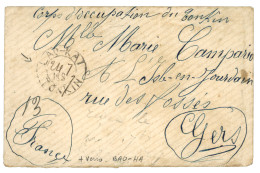 Corps d'occupation du Tonkin
Mlle Marie Campario
à L'Isle-en-Jourdain
rue des Fossés
Gers
13
France
+ Verso BAO-HA